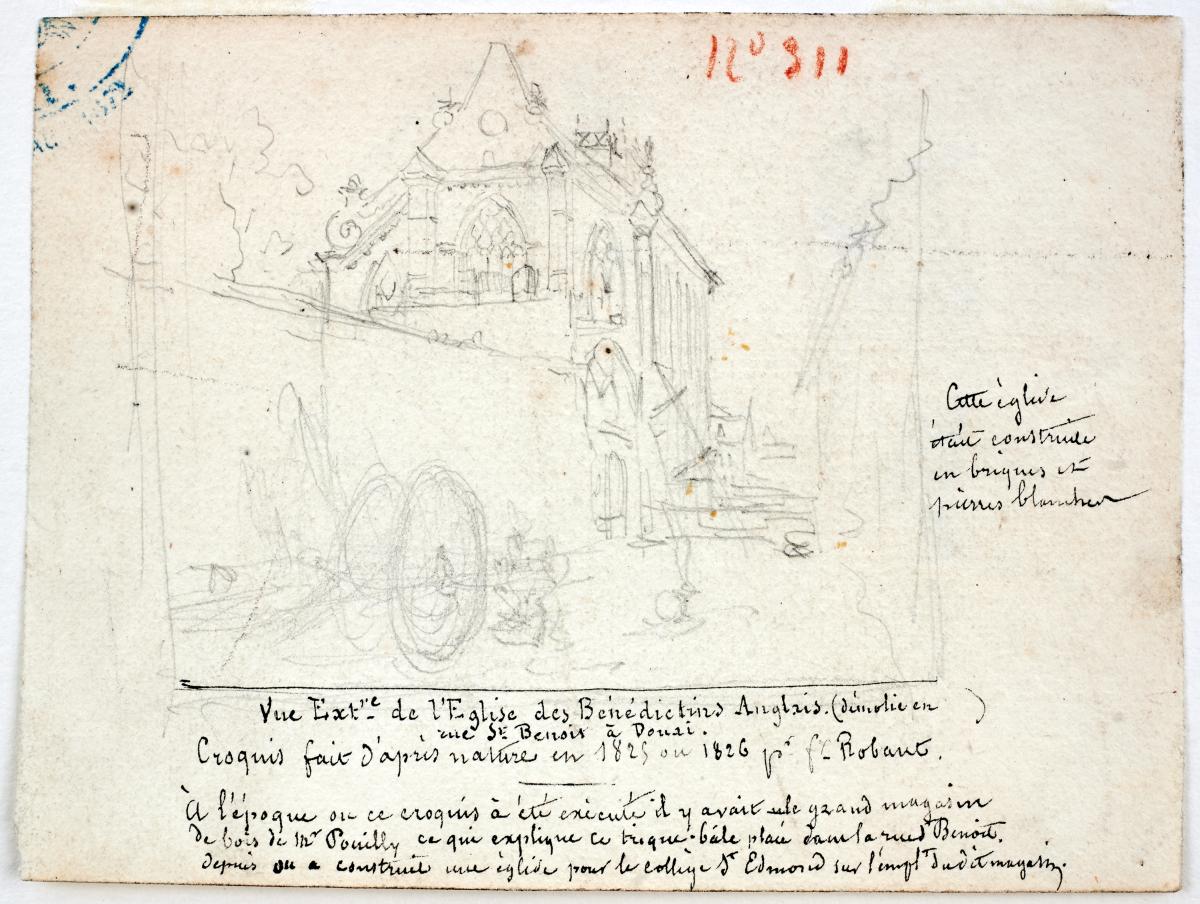 No 311
Cette église
était construite
en briques et
pierres blanches
Vue Extre de l'Eglise des Bénédictins Anglais. (démolie en )
rue St Benoit à Douai.
Croquis fait d'après nature en 1825 ou 1826 pr fx Robaut.
À l'époque ou ce croquis à été exécuté il y avait le grand magasin
de bois de Mr Pouilly ce qui explique ce trique-bale placé dans la rue St Benoit.
depuis on a construit une église pour le collège St Edmond sur l'empt dudit magasin.